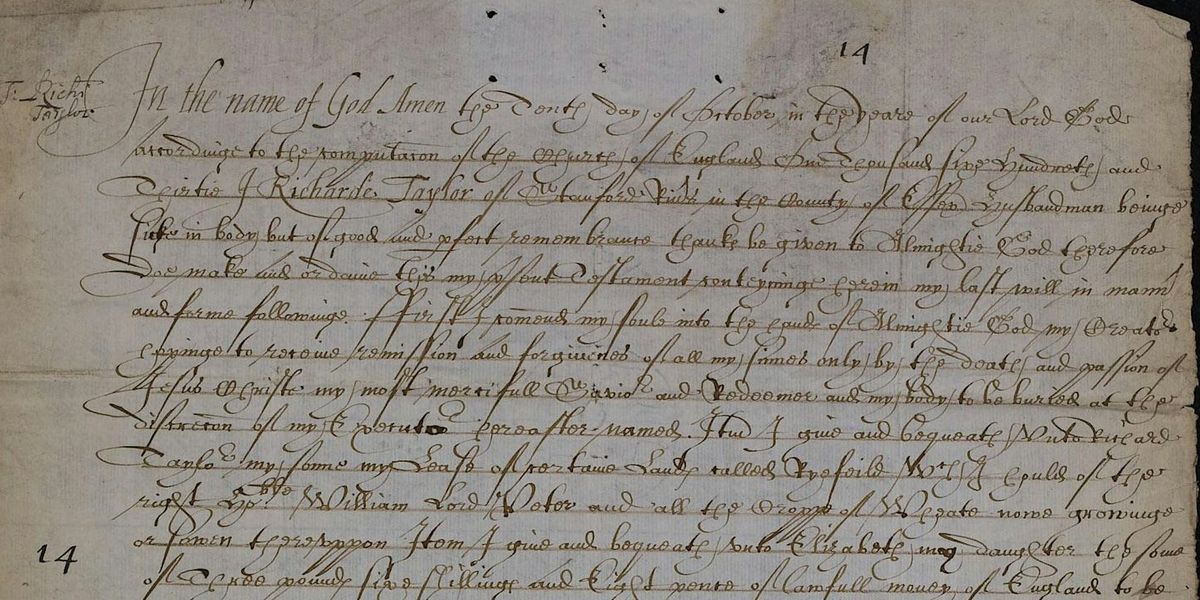 14
T: Rich
Taylor
In the name of God Amen the Tenth day of October in the yeare of our Lord God
accordinge to the computacon of the Church of England One Thousand sixe Hundreth and
Thirtie I Richarde Taylor of Stamford Rivers in the County of Essex Husbandman beinge
sicke in body but of good and pfect remembrance thanks be given to Almightie God therefore
Doe make and ordaine this my psent Testament conteyninge herein my last will in mann
and forme followinge. Ffirst I comend my soule into the hands of Almightie God my Creator
hopinge to receive remission and forgivenes of all my sinnes only by the death and passion of
Jesus Christe my most mercifull Savior and Redeemer and my body to be buried at the
discrecon of my Executor hereafter named. Itm I give and bequeath Unto Richard
Taylor my sonne my Lease of certaine Lands called Ryefeild Wch I hould of the
right Hoble William Lord Peter and all the Croppe of Wheate nowe growinge
or sowen thereuppon Item I give and bequeath unto Elizabeth my daughter the some
14
of Three pounds sixe shillings and Eight pence of lawfull money of England to be